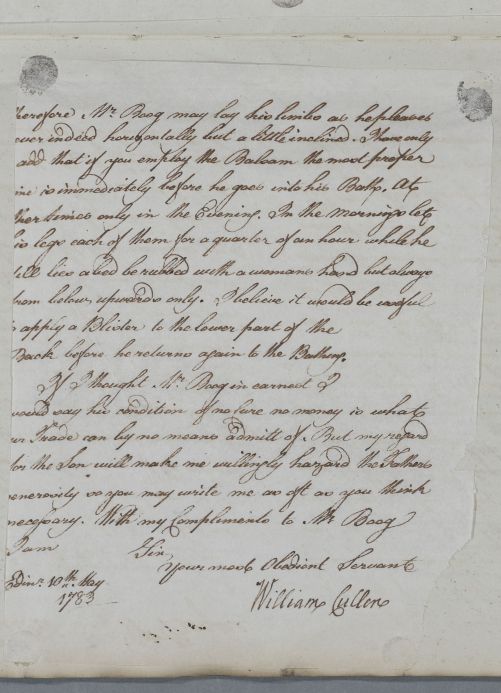 herefore Mr. Boog may lay his limbs as he pleases
ever indeed horizontally but a little inclined. I have only
add that if you employ the Balsam the most proper
me is immediately before he goes into his Bath. At
ther times only in the Evening. In the mornings let
his legs each of them for a quarter of an hour while he
till lies abed be rubbed with a womans hand but always
from below upwards only. I believe it would be useful
apply a Blister to the lower part of the
Back before he returns again to the Bathing.
If I thought Mr. Boog in earnest I
would say his condition of no Cure no money is what
our Trade can by no means admitt of. But my regard
for the Son will make me willingly hazard the Fathers
generosity so you may write me as oft as you think
necessary. With my Compliments to Mr Boog
I am Sir
Your most Obedient Servant
Edinr. 10th. May
1783
William Cullen